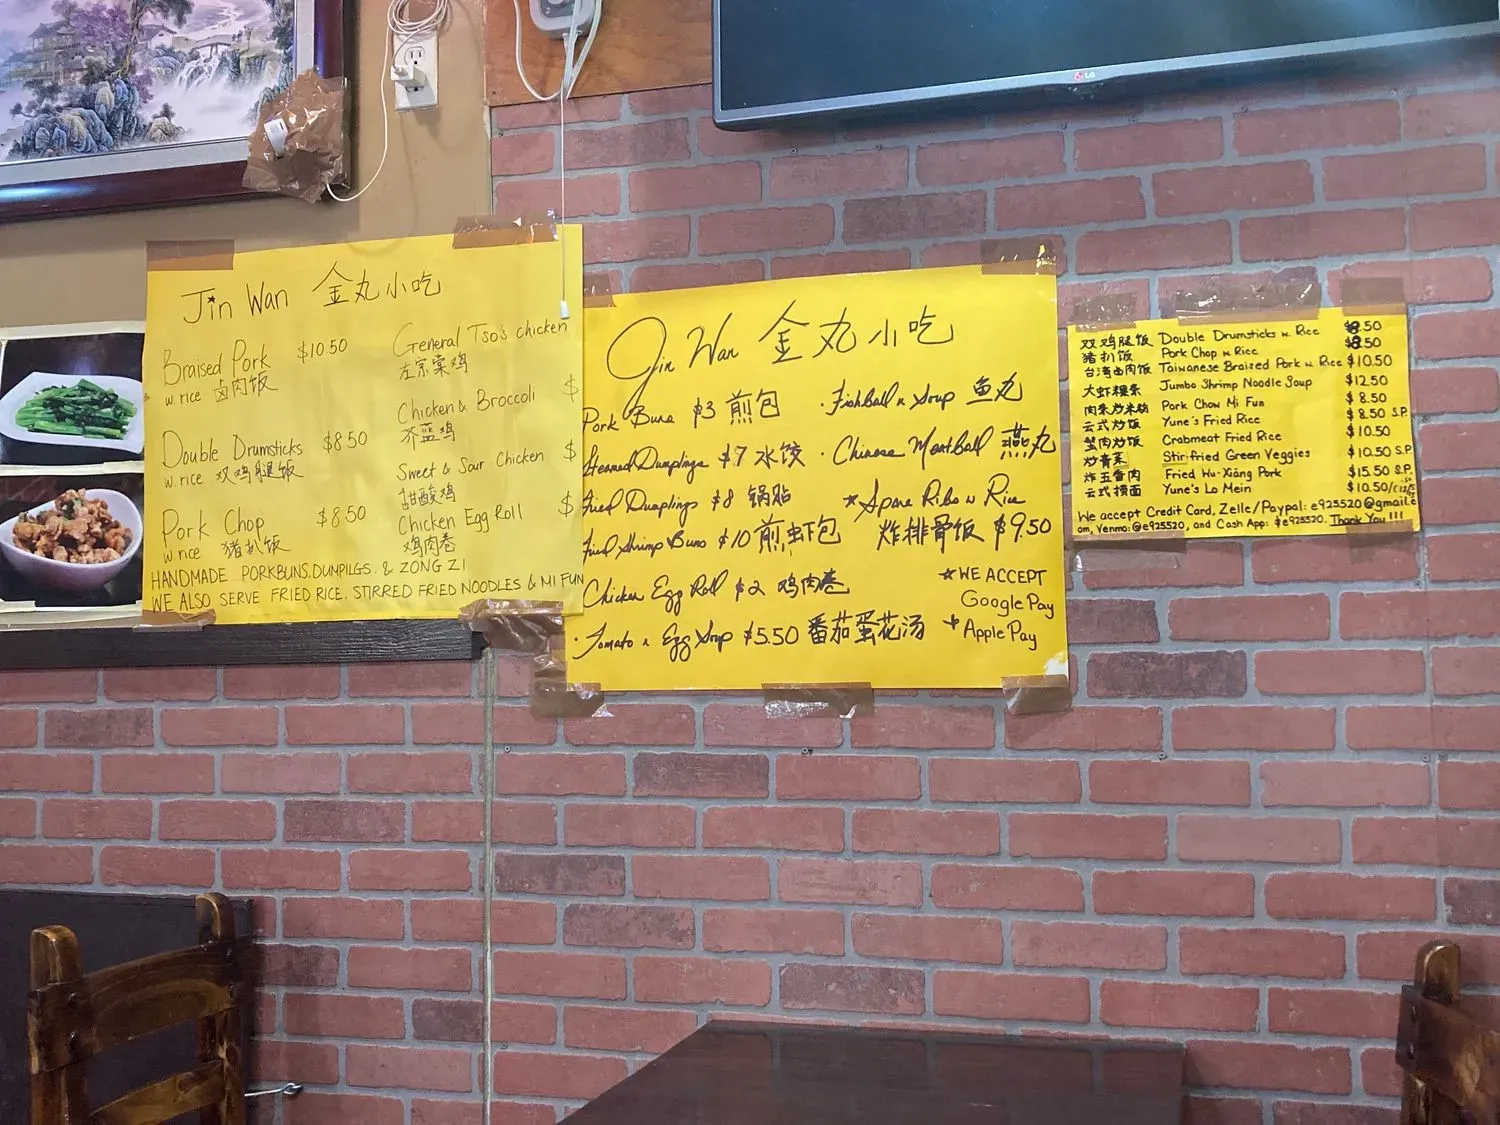 LG
Jin Wan 金丸小吃
Braised Pork $10.50
w. rice 卤肉饭
Double Drumsticks $8.50
w. rice 双鸡腿饭
Pork Chop $8.50
w. rice 猪扒饭
General Tso's chicken
左宗棠鸡
Chicken & Broccoli $
芥蓝鸡
Sweet & Sour Chicken $
甜酸鸡
Chicken Egg Roll $
鸡肉卷
HANDMADE PORKBUNS, DUMPILGS, & ZONG ZI
WE ALSO SERVE FRIED RICE, STIRRED FRIED NOODLES & MI FUN
Jin Wan 金丸小吃
Pork Buns $3 煎包
Steamed Dumplings $7 水饺
Fried Dumplings $8 锅贴
Fried Shrimp Buns $10 煎虾包
Chicken Egg Roll $2 鸡肉卷
· Tomato n Egg Soup $5.50 番茄蛋花汤
· Fishball n Soup 鱼丸
· Chinese Meatball 燕丸
★ Spare Ribs n Rice
炸排骨饭 $9.50
★ WE ACCEPT
Google Pay
+ Apple Pay
双鸡腿饭 Double Drumsticks n. Rice $8.50
猪扒饭 Pork Chop n Rice $8.50
台湾卤肉饭 Taiwanese Braised Pork n Rice $10.50
大虾粿条 Jumbo Shrimp Noodle Soup $12.50
肉条炒米粉 Pork Chow Mi Fun $8.50
云式炒饭 Yune's Fried Rice $8.50 S.P.
蟹肉炒饭 Crabmeat Fried Rice $10.50
炒青菜 Stir-fried Green Veggies $10.50 S.P.
炸五香肉 Fried Hu-Xiang Pork $15.50 S.P.
云式捞面 Yune's Lo Mein $10.50
We accept Credit Card, Zelle/Paypal: e925520@gmail.c
om, Venmo: @e925520, and Cash App: $e925520. Thank You !!!